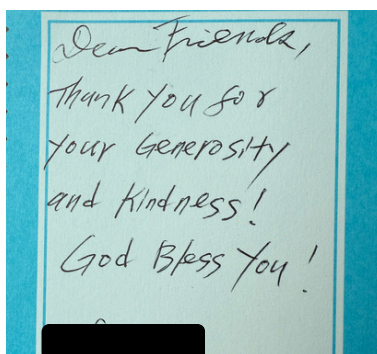 Dear Friends,
Thank you for
your Generosity
and Kindness!
God Bless You!